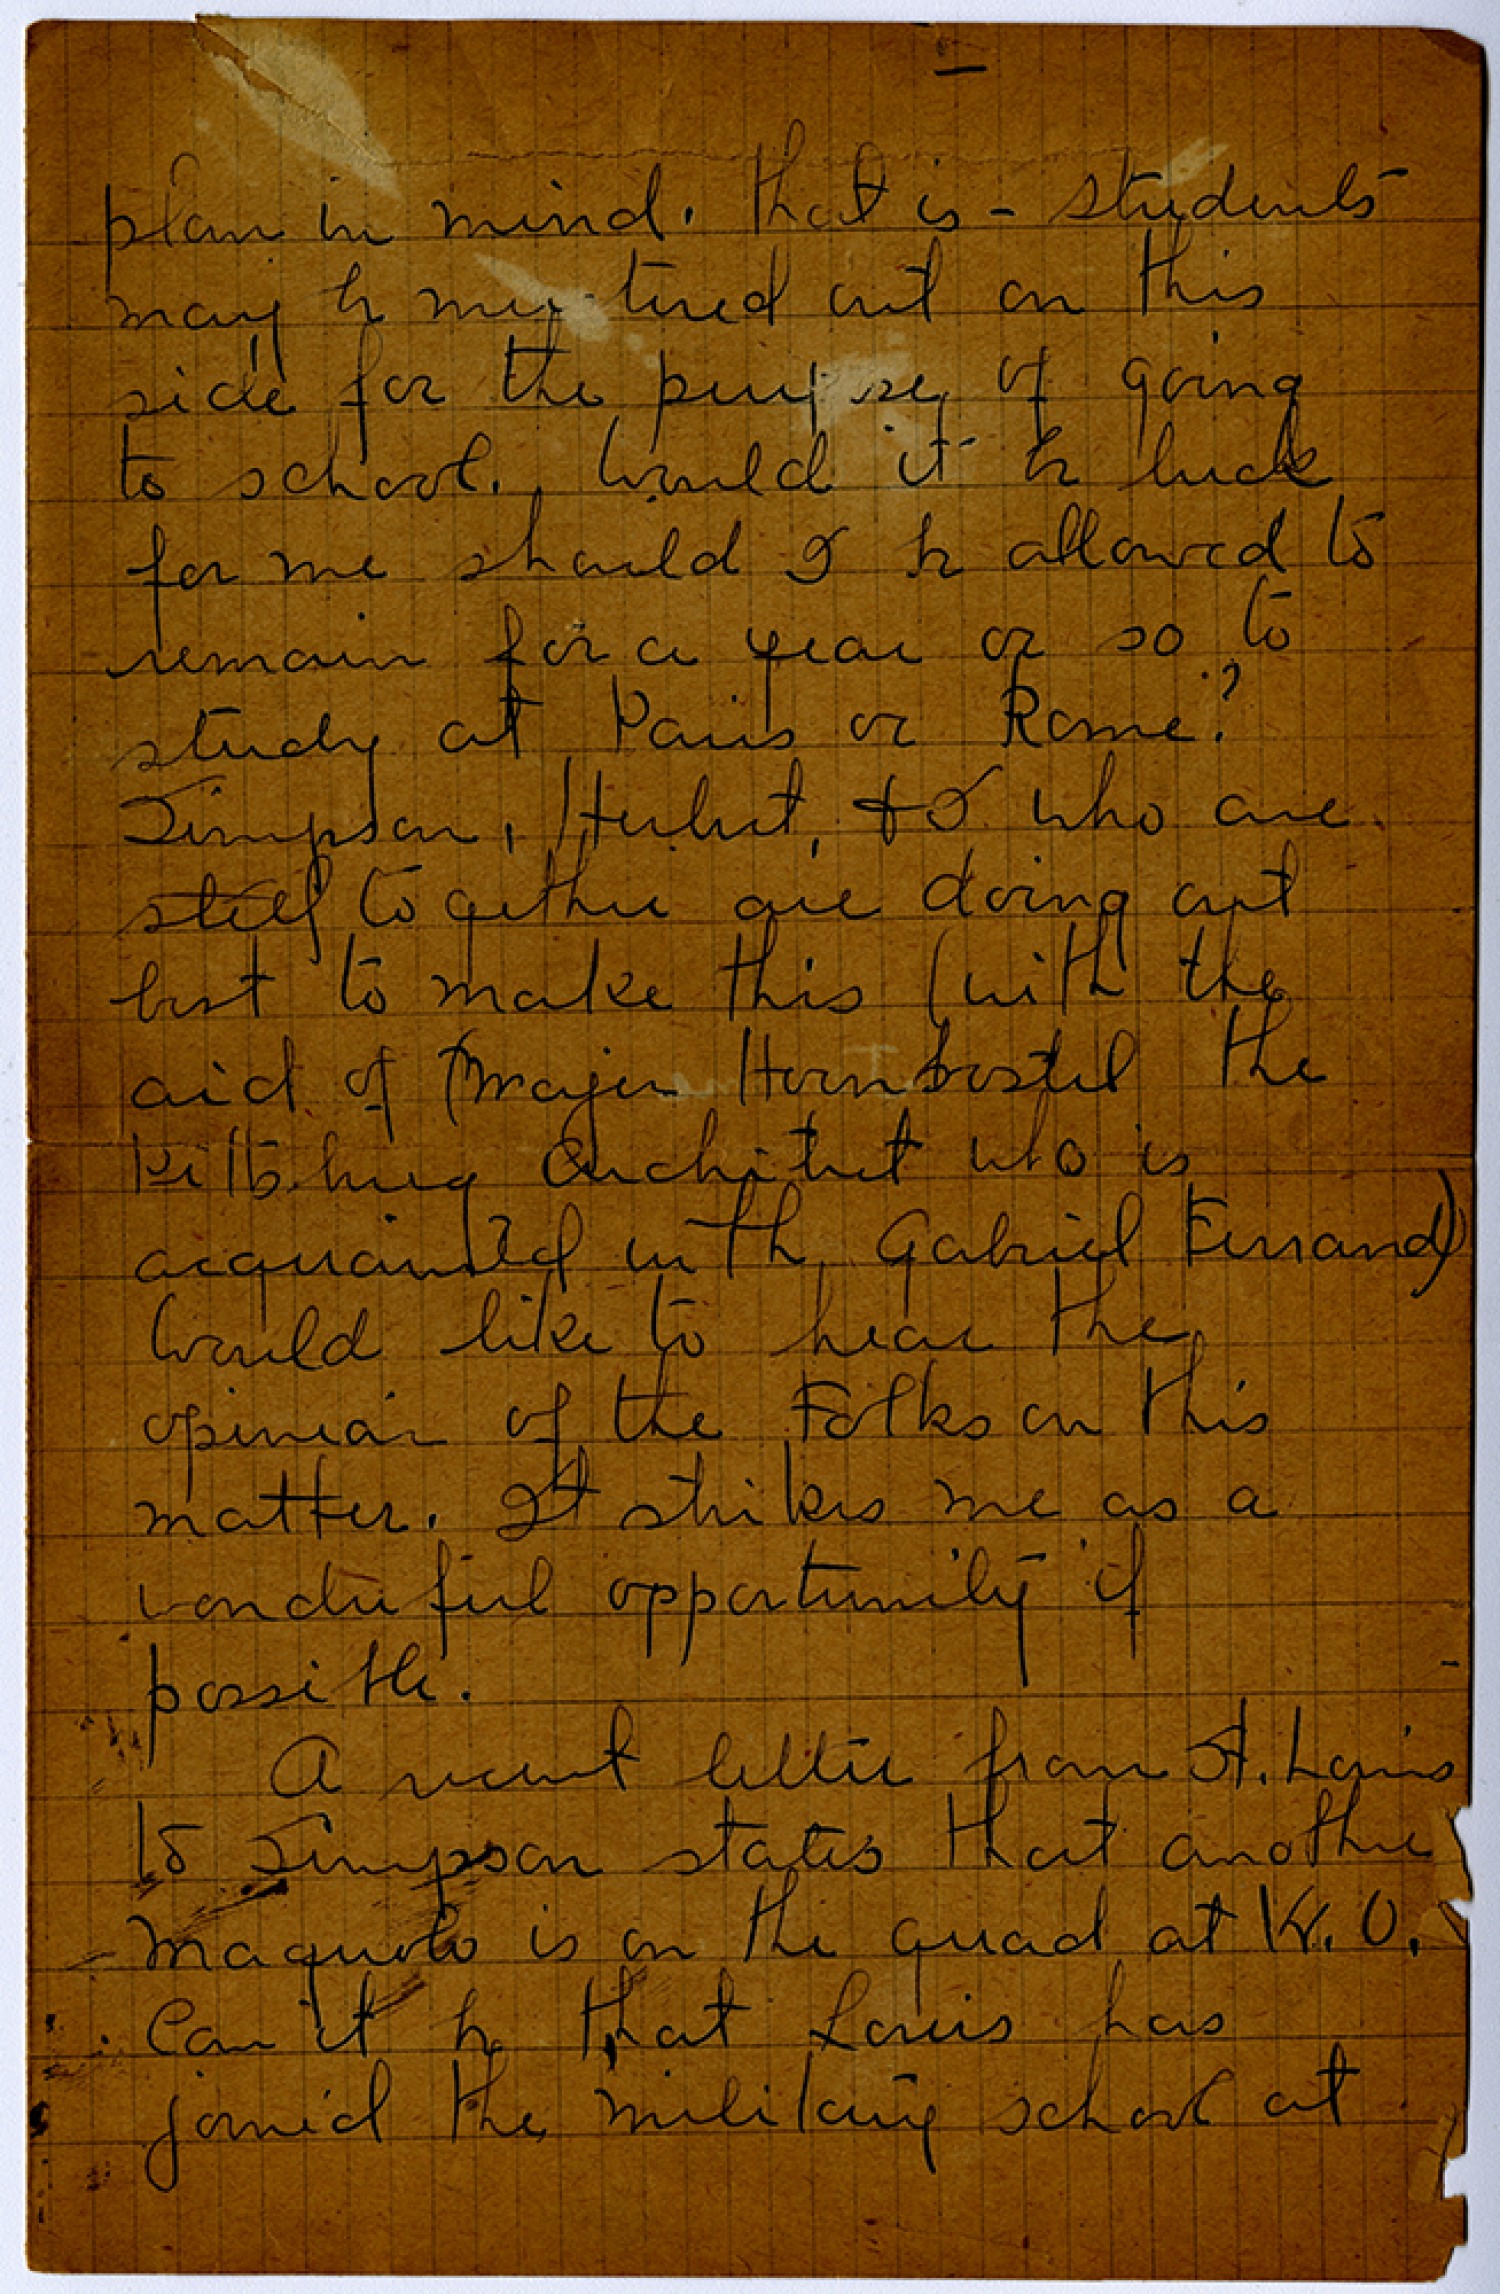 plan in mind. That is - students
may be mustered out on this
side for the purpose of going
to school. Would it be luck
for me should I be allowed to
remain for a year or so to
study at Paris or Rome?
Simpson, Herbert, & I who are
still together are doing out
best to make this (with the
aid of (Major Hornbostel the
Pittsburg Architect who is
acquainted with Gabriel Ferrand)
Would like to hear the
opinion of the Folks on this
matter. It strikes me as a
wonderful opportunity if
possible.
A recent letter from St. Louis
to Simpson states that another
Maquolo is on the quad at W. U.
Can it be that Louis has
joined the military school at